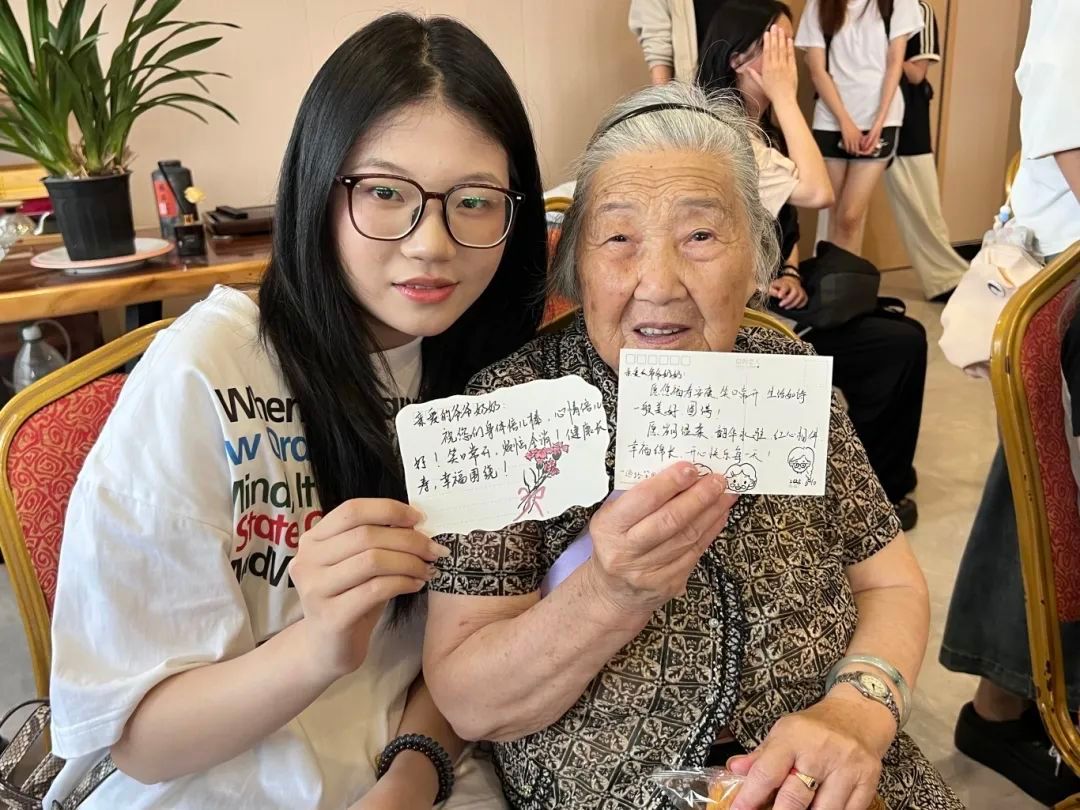 亲爱的爷爷奶奶:
祝您们身体倍儿棒,心情倍儿
好!笑口常开,烦恼全消!健康长
寿,幸福围绕!
亲爱的爷爷奶奶:
愿您福寿安康 笑口常开 生活如诗
一般美好 圆满!
愿岁月温柔 韶华永驻 红心相伴
幸福绵长,开心快乐每一天!
When
w Ord
Mind, It
State